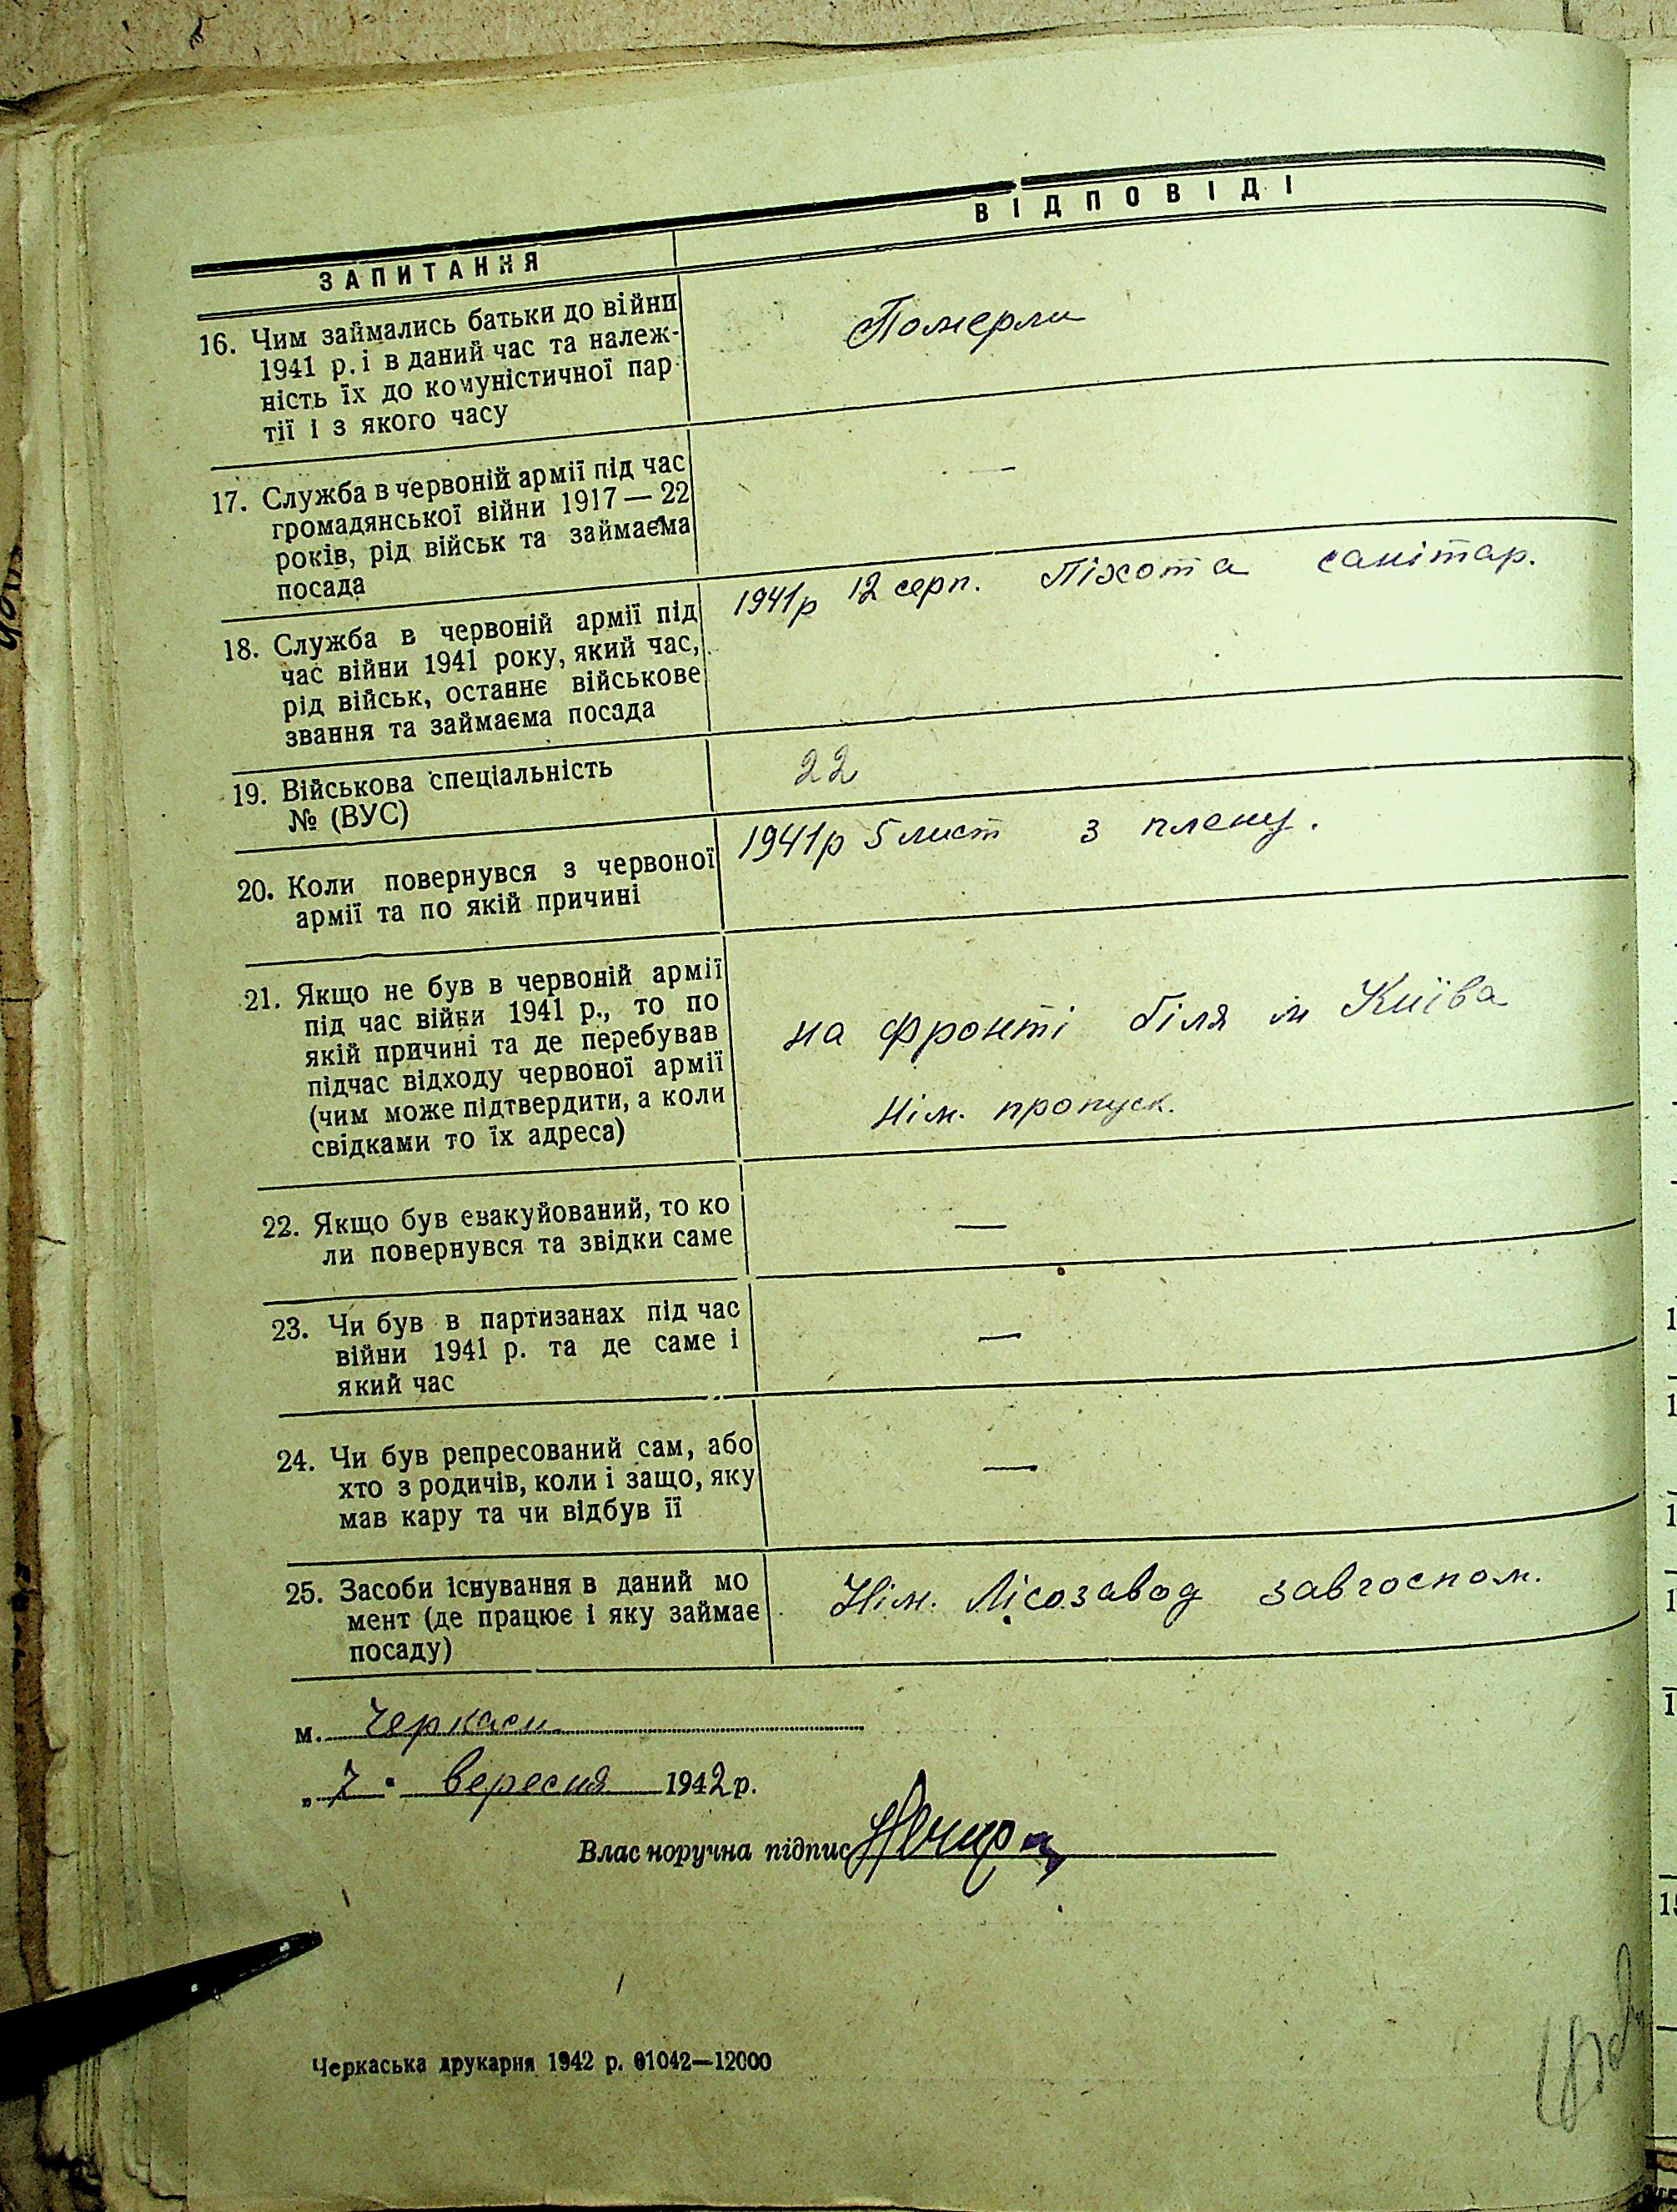 ЗАПИТАННЯ
ВІДПОВІДІ
16. Чим займались батьки до війни
1941 р. і в даний час та належ-
ність їх до комуністичної пар-
тії і з якого часу
Померли
17. Служба в червоній армії під час
громадянської війни 1917 — 22
років, рід військ та займаєма
посада
—
18. Служба в червоній армії під
час війни 1941 року, який час,
рід військ, останнє військове
звання та займаєма посада
1941р 12 серп. Піхота санітар.
19. Військова спеціальність
№ (ВУС)
22
20. Коли повернувся з червоної
армії та по якій причині
1941р 5 лист з плену.
21. Якщо не був в червоній армії
під час війни 1941 р., то по
якій причині та де перебував
підчас відходу червоної армії
(чим може підтвердити, а коли
свідками то їх адреса)
на фронті біля м Київа
Нім. пропуск.
22. Якщо був евакуйований, то ко
ли повернувся та звідки саме
—
23. Чи був в партизанах під час
війни 1941 р. та де саме і
який час
—
24. Чи був репресований сам, або
хто з родичів, коли і защо, яку
мав кару та чи відбув її
—
25. Засоби існування в даний мо
мент (де працює і яку займає
посаду)
Нім. Лісозавод завгоспом.
м. Черкаси
„ 7 " вересня 1942 р.
Власноручна підпис
Черкаська друкарня 1942 р. 01042—12000